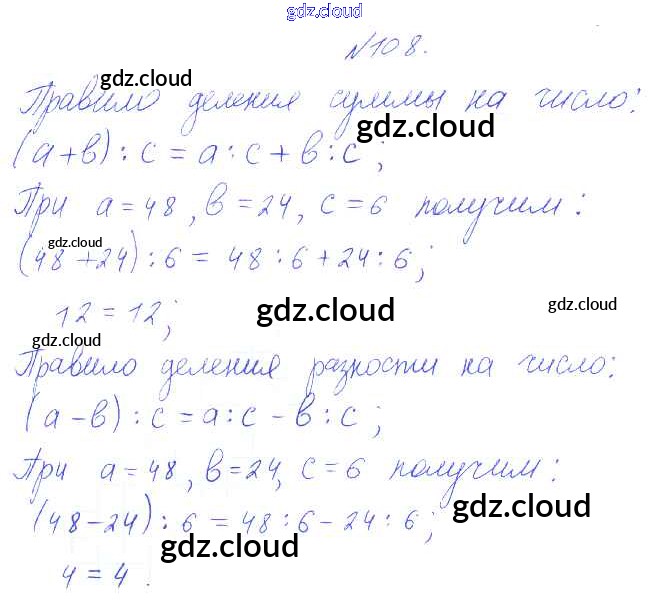 gdz.cloud
№108.
gdz.cloud
Правило деления суммы на число:
gdz.cloud
(а+в) : с = а : с + в : с ;
При а = 48 , в = 24 , с = 6 получим :
gdz.cloud
(48 + 24) : 6 = 48 : 6 + 24 : 6 ;
12 = 12 ;
gdz.cloud
gdz.cloud
gdz.cloud
Правило деления разности на число:
(а - в) : с = а : с - в : с ;
При а = 48 , в = 24, с = 6 получим :
(48 - 24) : 6 = 48 : 6 - 24 : 6 ;
gdz.cloud
gdz.cloud
4 = 4 .